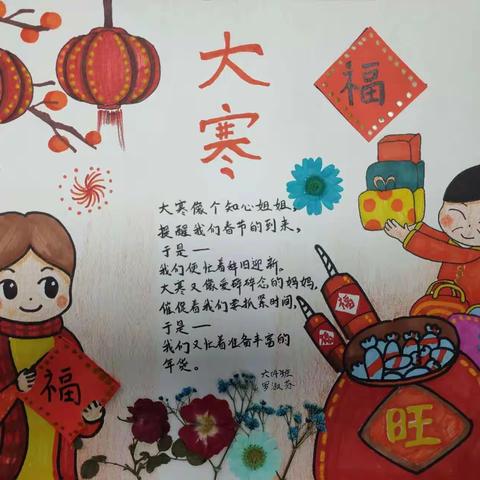 大寒
福
大寒像个知心姐姐,
提醒我们春节的到来,
于是——
我们便忙着辞旧迎新。
大寒又像爱碎碎念的妈妈,
催促着我们要抓紧时间,
于是——
我们又忙着准备丰富的
年货。
福
福
旺